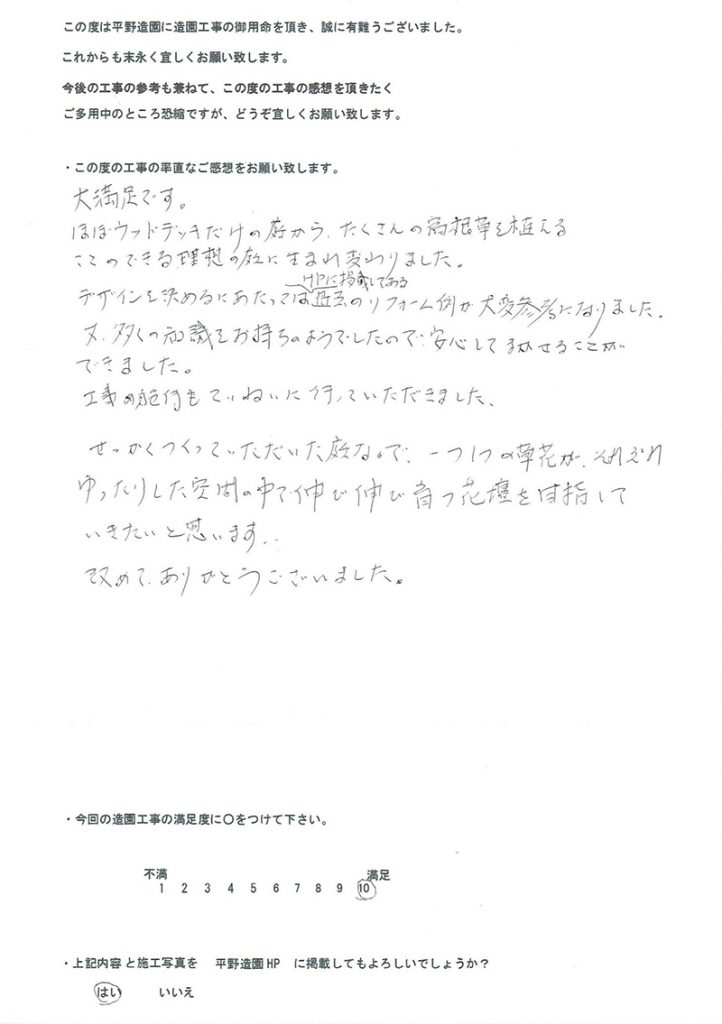 この度は平野造園に造園工事の御用命を頂き、誠に有難うございました。
これからも末永く宜しくお願い致します。
今後の工事の参考も兼ねて、この度の工事の感想を頂きたく
ご多用中のところ恐縮ですが、どうぞ宜しくお願い致します。
・この度の工事の率直なご感想をお願い致します。
大満足です。
ほぼウッドデッキだけの庭から、たくさんの宿根草を植える
ことのできる理想の庭に生まれ変わりました。
HPに掲載してある
デザインを決めるにあたっては過去のリフォーム例が大変参考になりました。
又、多くの知識をお持ちのようでしたので、安心してまかせることが
できました。
工事の施行もていねいに行っていただきました。
せっかくつくっていただいた庭なので、一つ1つの草花が、それぞれ
ゆったりした空間の中で伸び伸び育つ花壇を目指して
いきたいと思います。
改めて、ありがとうございました。
・今回の造園工事の満足度に〇をつけて下さい。
不満 満足
1 2 3 4 5 6 7 8 9 10
・上記内容と施工写真を 平野造園HP に掲載してもよろしいでしょうか？
はい いいえ